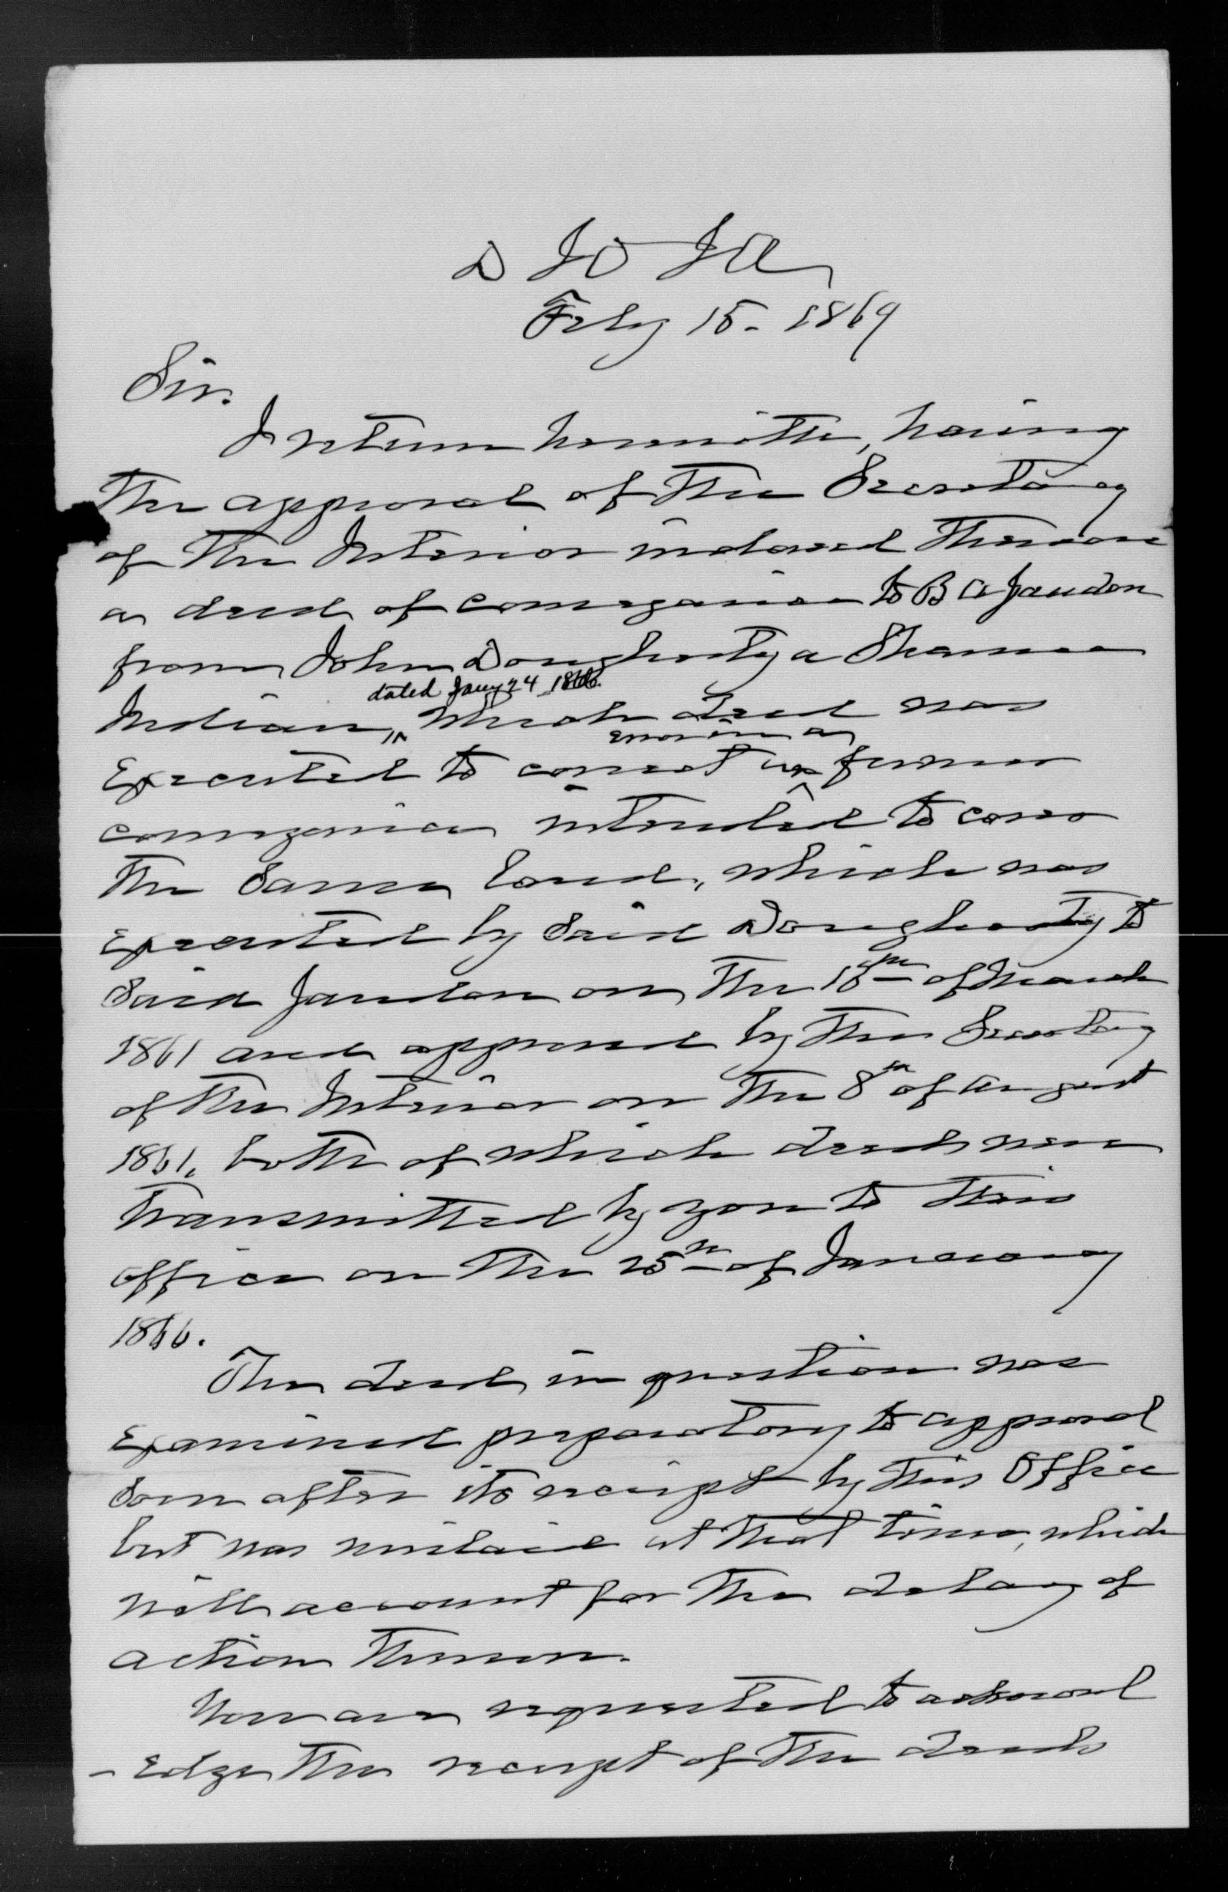 D I O I A
Feby 15 - 1869
Sir.
I return herewith, having
the approval of the Secretary
of the Interior indorsed thereon
a deed of conveyance to B A Jaudon
from John Dougherty a Shawnee
dated Jany 24 1866.
Indian, which deed was
error in a
Executed to correct former
conveyance intended to cover
the same land, which was
executed by said Dougherty to
said Jaudon on the 15th of March
1861 and approved by the Secretary
of the Interior on the 8th of August
1861, both of which deeds were
transmitted by you to this
office on the 25th of January
1866.
The deed in question was
examined preparatory to approval
soon after its receipt by this Office
but was mislaid at that time, which
will account for the delay of
action thereon.
You are requested to acknowl
-edge the receipt of the deeds